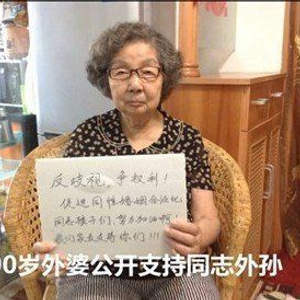 反歧视,争权利!
促进同性婚姻合法化
同志孩子们,努力加油啊!
我们家长支持你们!!!
90岁外婆公开支持同志外孙